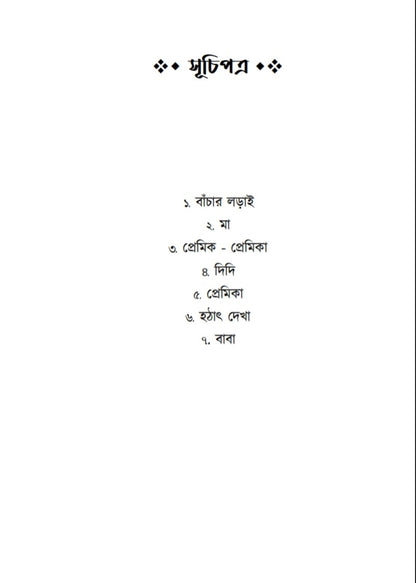 ❖⬩ সূচিপত্র ⬩❖
১. বাঁচার লড়াই
২. মা
৩. প্রেমিক - প্রেমিকা
৪. দিদি
৫. প্রেমিকা
৬. হঠাৎ দেখা
৭. বাবা